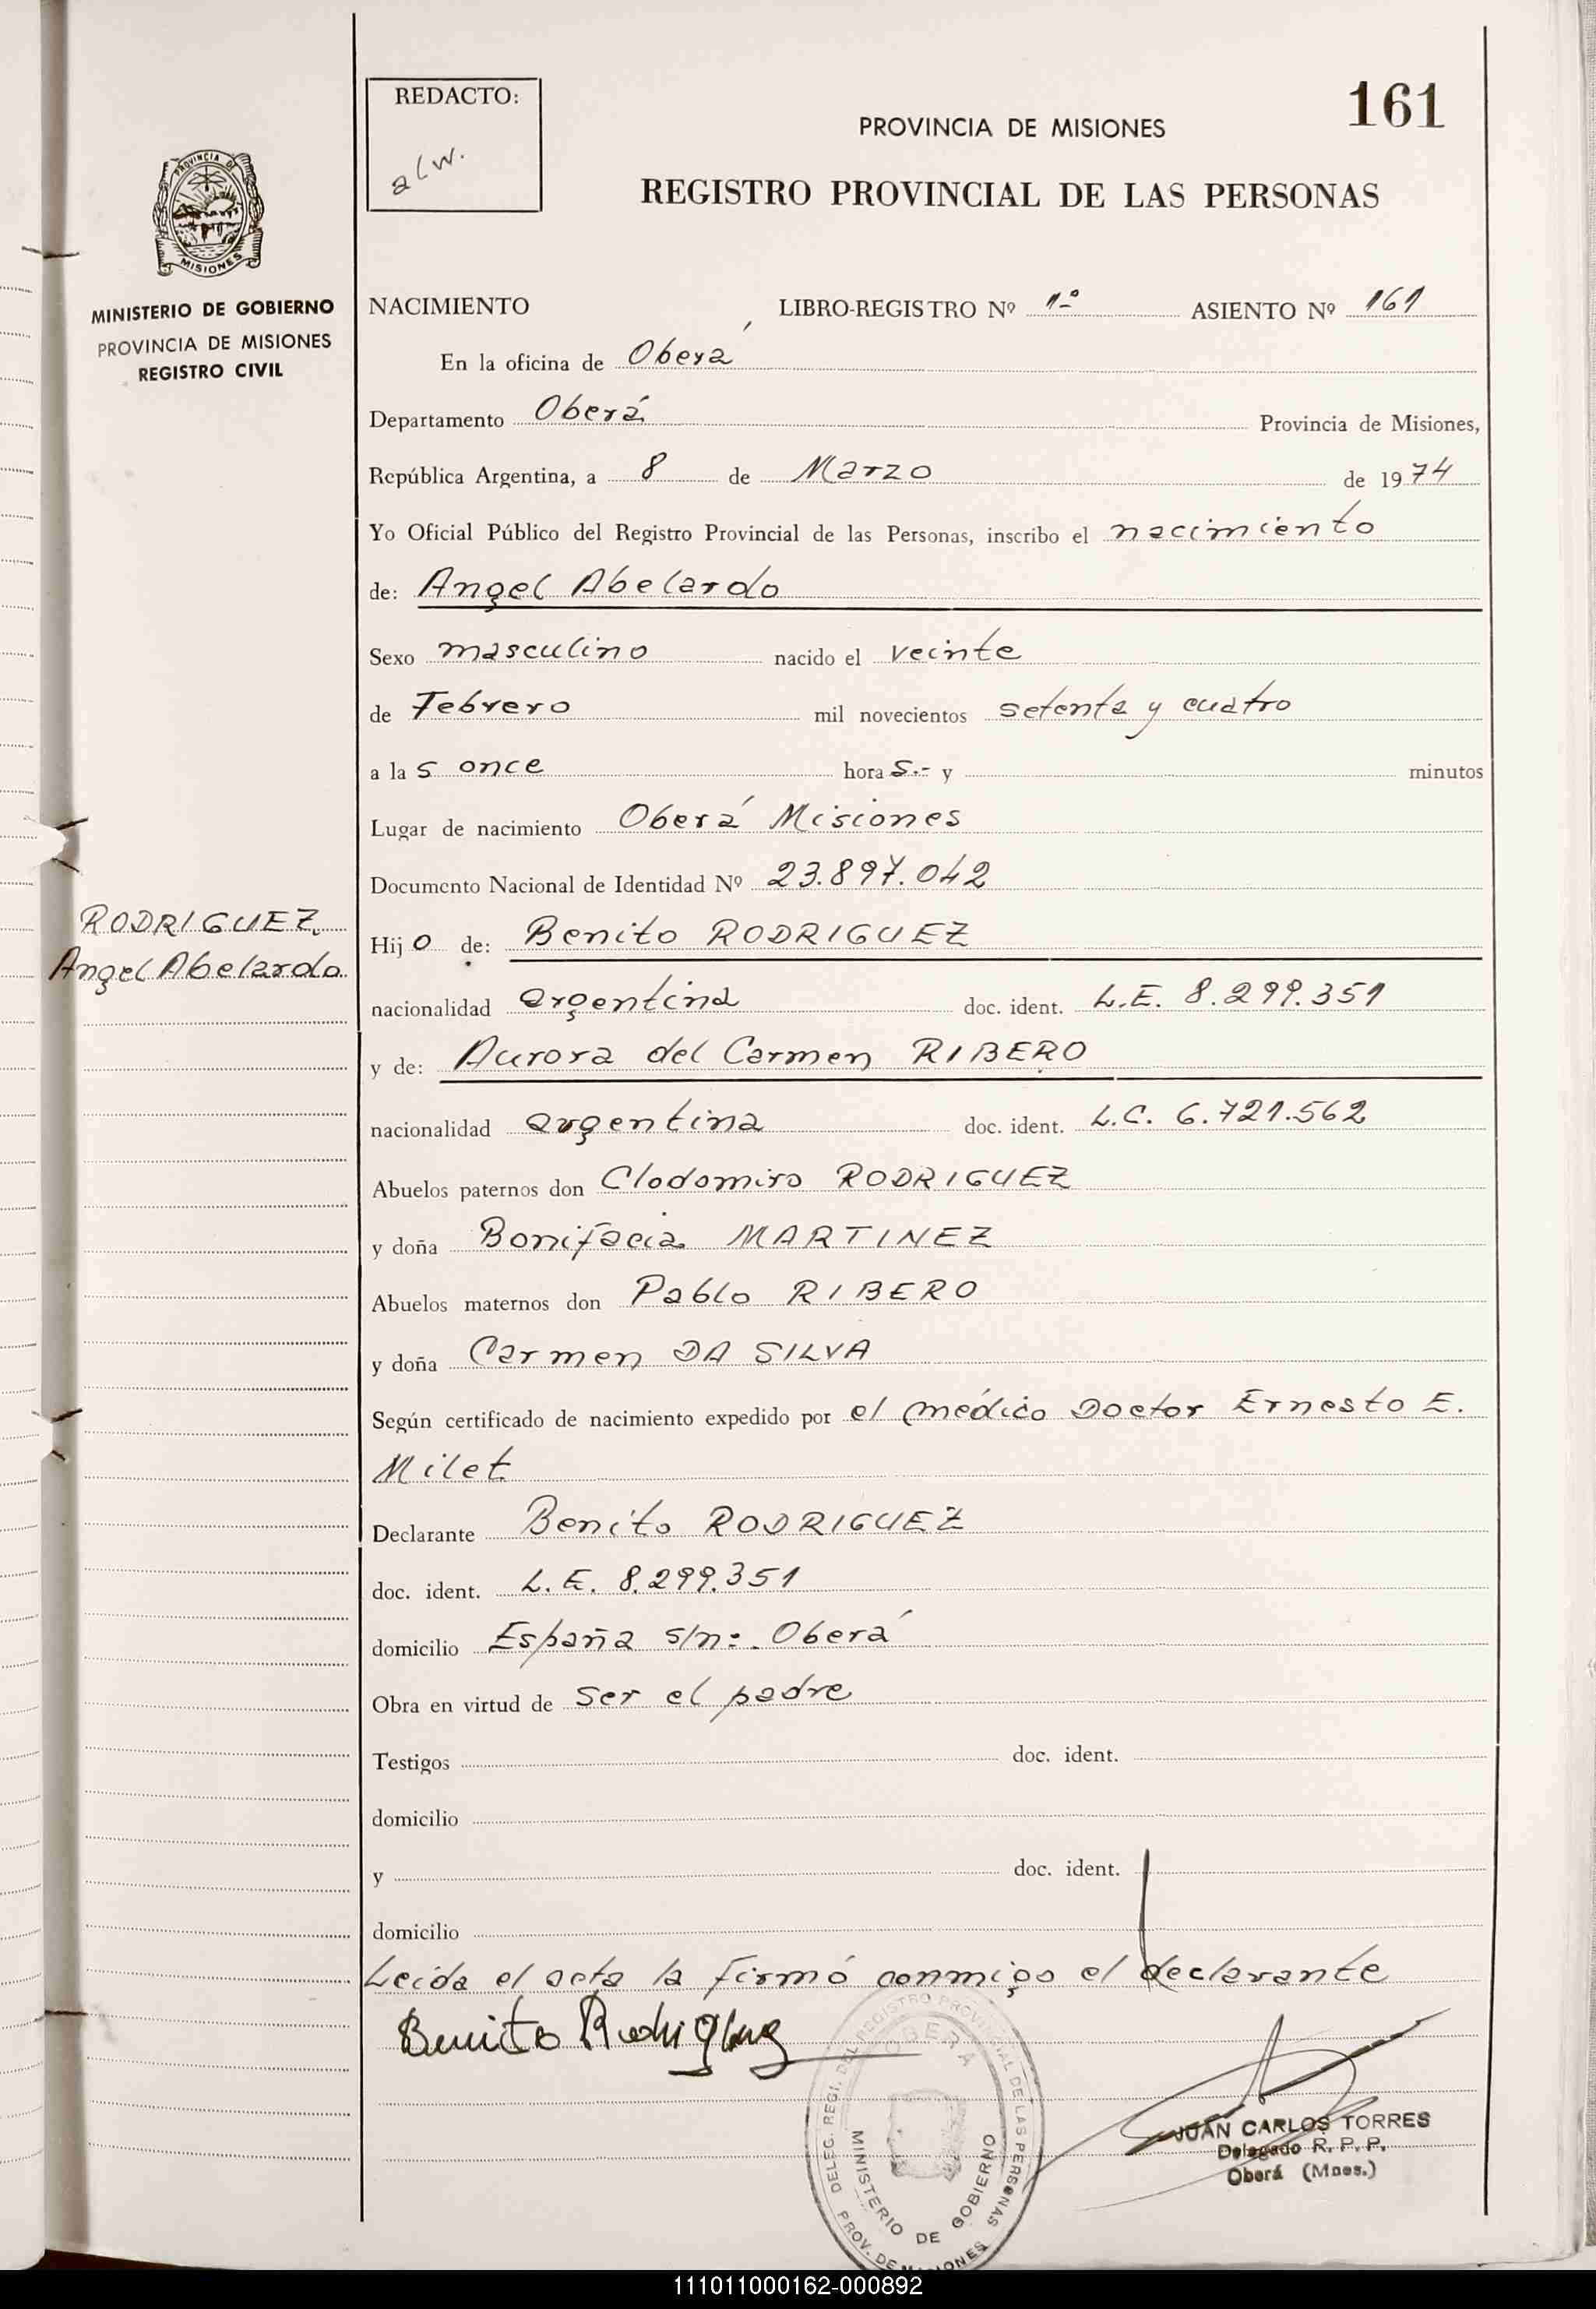 REDACTO:
alw.
161
PROVINCIA DE MISIONES
REGISTRO PROVINCIAL DE LAS PERSONAS
PROVINCIA DE
MISIONES
MINISTERIO DE GOBIERNO
PROVINCIA DE MISIONES
REGISTRO CIVIL
NACIMIENTO LIBRO-REGISTRO Nº 1º ASIENTO Nº 161
En la oficina de Oberá
Departamento Oberá Provincia de Misiones,
República Argentina, a 8 de Marzo de 1974
Yo Oficial Público del Registro Provincial de las Personas, inscribo el nacimiento
de: Angel Abelardo
Sexo masculino nacido el veinte
de Febrero mil novecientos setenta y cuatro
a las once horas.- y minutos
Lugar de nacimiento Oberá Misiones
Documento Nacional de Identidad Nº 23.897.042
RODRIGUEZ
Angel Abelardo
Hijo de: Benito RODRIGUEZ
nacionalidad argentina doc. ident. L.E. 8.299.351
y de: Aurora del Carmen RIBERO
nacionalidad argentina doc. ident. L.C. 6.721.562
Abuelos paternos don Clodomiro RODRIGUEZ
y doña Bonifacia MARTINEZ
Abuelos maternos don Pablo RIBERO
y doña Carmen DA SILVA
Según certificado de nacimiento expedido por el médico Doctor Ernesto E.
Milet
Declarante Benito RODRIGUEZ
doc. ident. L.E. 8.299.351
domicilio España s/n:. Oberá
Obra en virtud de ser el padre
Testigos doc. ident.
domicilio
y doc. ident.
domicilio
Leida el acta la firmó conmigo el declarante
Benito Rodriguez
DELEG. REGI. DEL REGISTRO PROVINCIAL DE LAS PERSONAS
OBERA
MINISTERIO DE GOBIERNO
PROV. DE MISIONES
JUAN CARLOS TORRES
Delegado R. P. P.
Oberá (Mnes.)
111011000162-000892